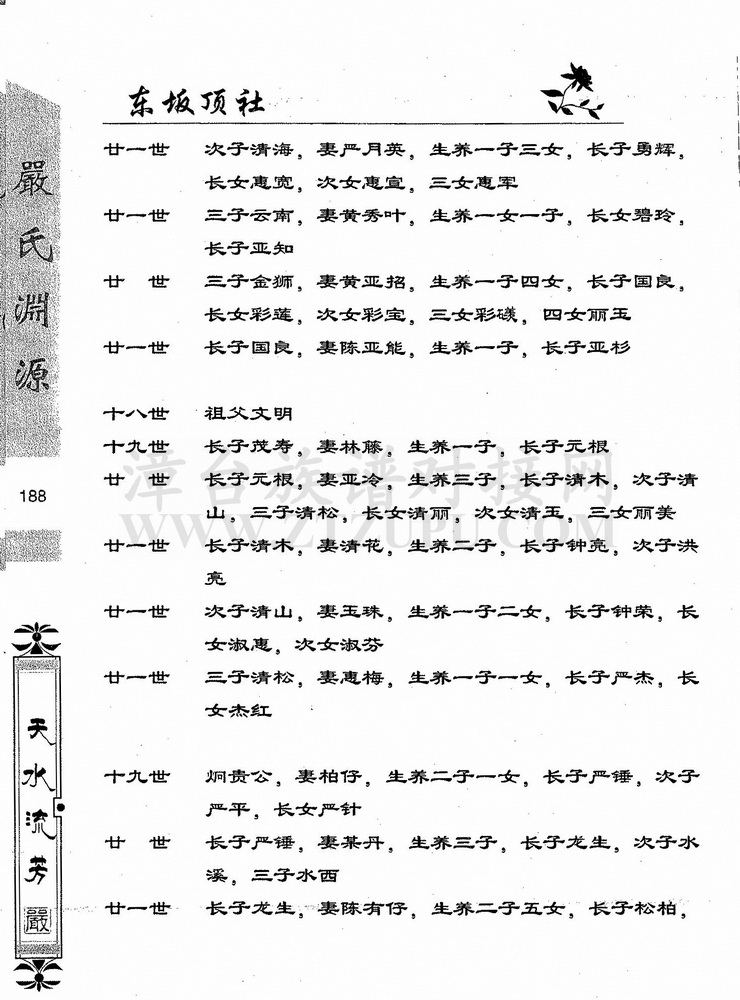 东坂顶社
廿一世 次子清海，妻严月英，生养一子三女，长子勇辉，
长女惠宽，次女惠宣，三女惠军
廿一世 三子云南，妻黄秀叶，生养一女一子，长女碧玲，
长子亚知
廿 世 三子金狮，妻黄亚招，生养一子四女，长子国良，
长女彩莲，次女彩宝，三女彩磯，四女丽玉
廿一世 长子国良，妻陈亚能，生养一子，长子亚杉
十八世 祖父文明
十九世 长子茂寿，妻林藤，生养一子，长子元根
廿 世 长子元根，妻亚冷，生养三子，长子清木，次子清
山，三子清松，长女清丽，次女清玉，三女丽美
廿一世 长子清木，妻清花，生养二子，长子钟亮，次子洪
亮
廿一世 次子清山，妻玉珠，生养一子二女，长子钟荣，长
女淑惠，次女淑芬
廿一世 三子清松，妻惠梅，生养一子一女，长子严杰，长
女杰红
十九世 炯贵公，妻柏仔，生养二子一女，长子严锤，次子
严平，长女严针
廿 世 长子严锤，妻某丹，生养三子，长子龙生，次子水
溪，三子水西
廿一世 长子龙生，妻陈有仔，生养二子五女，长子松柏，
嚴氏淵源
188
天水流芳
嚴
漳台族谱对接网
WWW.ZTZUPU.COM